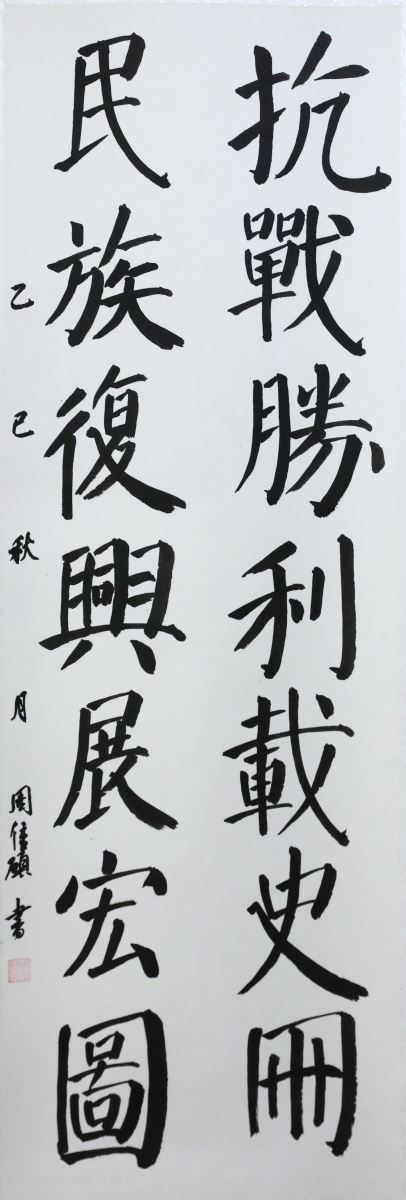 抗戰勝利載史冊
民族復興展宏圖
乙巳秋月周信碩書